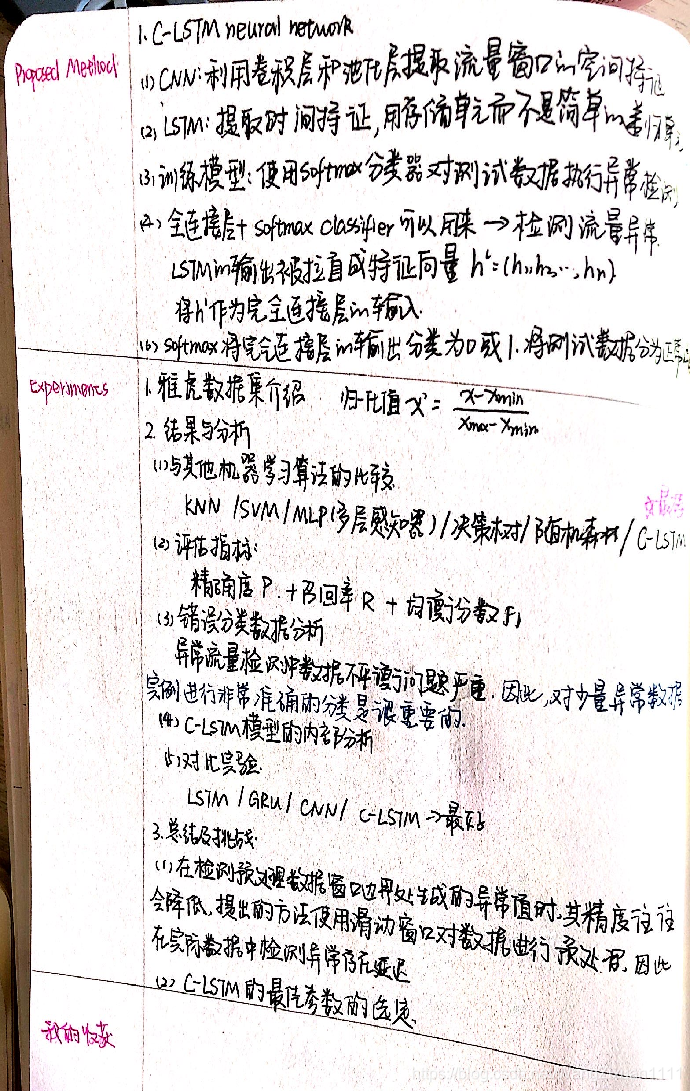 Proposed Method
1. C-LSTM neural network
(1) CNN: 利用卷积层和池化层提取流量窗口的空间特征
(2) LSTM: 提取时间特征, 用存储单元而不是简单的递归单元
(3) 训练模型: 使用softmax分类器对测试数据执行异常检测
(4) 全连接层+ softmax classifier 可以用来 → 检测流量异常.
LSTM的输出被拉直成特征向量 h'=(h1,h2,…,hn)
将h'作为完全连接层的输入.
softmax将完全连接层的输出分类为0或1. 将测试数据分为正常
Experiments
1. 雅虎数据集介绍 归一化值 x' = (x-xmin)/(xmax-xmin)
2. 结果与分析
(1) 与其他机器学习算法的比较
KNN /SVM/MLP(多层感知器) /决策树/随机森林/ C-LSTM
(2) 评估指标:
精确度 P. +召回率 R + 均衡分数 F1
(3) 错误分类数据分析
异常流量检测中数据不平衡问题严重. 因此, 对少量异常数据
实例进行非常准确的分类是很重要的.
(4) C-LSTM模型的内部分析
(5) 对比实验
LSTM / GRU / CNN/ C-LSTM → 最好
3. 总结及挑战
(1) 在检测预处理数据窗口边界处生成的异常值时, 其精度往往
会降低. 提出的方法使用滑动窗口对数据进行预处理. 因此
在实际数据中检测异常存在延迟
(2) C-LSTM的最佳参数的选定.
我的收获